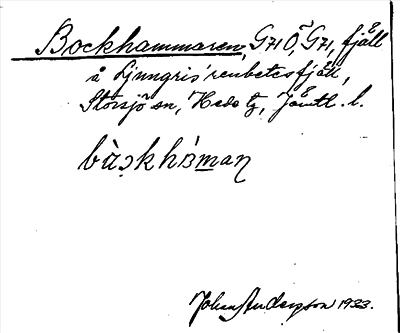 Bockhammaren, G71 Ö, G71, fjäll
å Ljungris' renbetesfjäll,
Storsjö sn, Hede tg, Jämtl. l.
bàckhàman
Johan Anderson 1933.